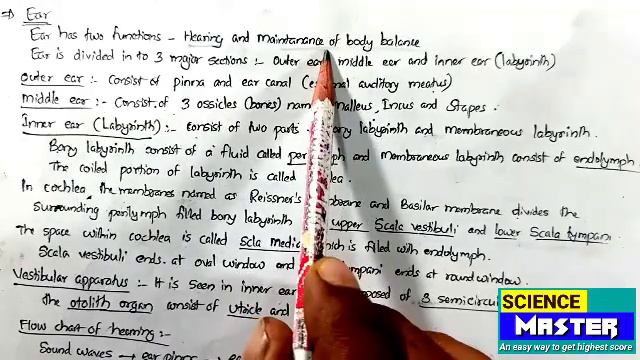 → Ear
Ear has two functions - Hearing and maintanance of body balance
Ear is divided in to 3 major sections :- Outer ear middle ear and inner ear (labyrinth)
Outer ear :- Consist of pinna and ear canal (ex nal auditory meatus)
Middle ear :- Consist of 3 ossicles (bones) nam malleus, Incus and Stapes.
Inner ear (Labyrinth) :- Consist of two parts ony labyrinth and membraneous labyrinth.
Bony labyrinth consist of a fluid called per ph and membraneous labyrinth consist of endolymph
The coiled portion of labyrinth is called ea.
In cochlea, the membranes named as Reissner's membrane and Basilar membrane divides the
Surrounding perilymph filled bony labyrinth upper Scala vestibuli and lower Scala tympani
The space within cochlea is called scla medi hich is filled with endolymph.
Scala vestibuli ends at oval window and mpani ends at round window.
Vestibular apparatus :- It is seen in inner ear posed of 3 semicircu
The otolith organ consist of utricle and
Flow chart of hearing :-
Sound waves → ear pinna →
SCIENCE
MASTER
An easy way to get highest score